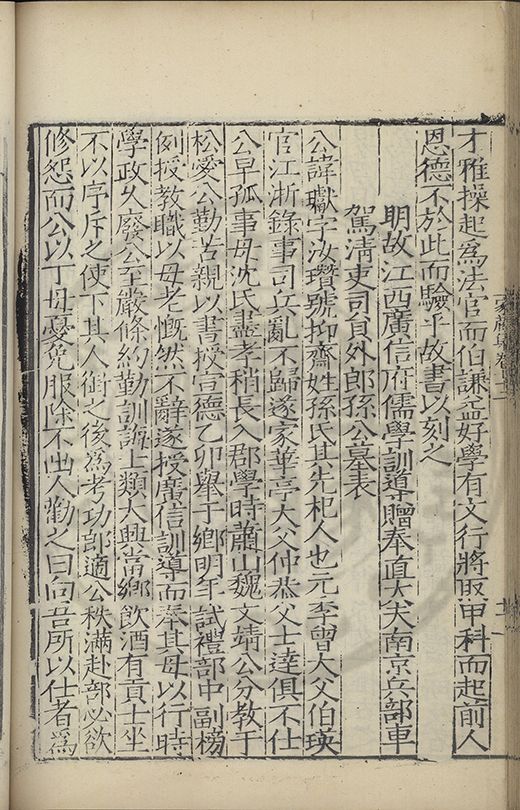 才雅操起爲法官而伯謙益好學有文行將取甲科而起前人
恩德不於此而驗乎故書以刻之
明故江西廣信府儒學訓導贈奉直大夫南京兵部車
駕清吏司員外郎孫公墓表
公諱瓛字汝瓚號抑齋姓孫氏其先杞人也元季曾大父伯瑛
官江浙錄事司兵亂不歸遂家華亭大父仲恭父士達俱不仕
公早孤事母沈氏盡孝稍長入郡學時蕭山魏文靖公分教于
松愛公勤苦親以書授宣德乙卯舉于鄉明年試禮部中副榜
例授教職以母老慨然不辭遂授廣信訓導而奉其母以行時
學政久廢公至嚴條約勤訓誨士類大興嘗鄉飲酒有貢士坐
不以序斥之使下其人銜之後爲考功郎適公秩滿赴部必欲
修怨而公以丁母憂免服除不出人勸之曰向吾所以仕者爲